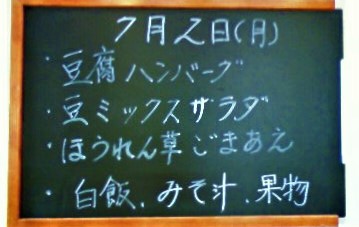 7月2日(月)
・豆腐ハンバーグ
・豆ミックスサラダ
・ほうれん草ごまあえ
・白飯、みそ汁、果物